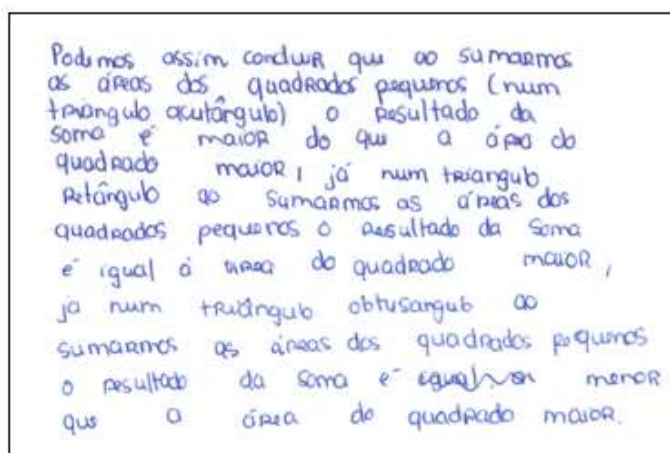 Podemos assim concluir que ao sumarmos
as áreas dos quadrados pequenos (num
triangulo acutângulo) o resultado da
soma é maior do que a área do
quadrado maior, já num triangulo
retângulo ao sumarmos as áreas dos
quadrados pequenos o resultado da soma
é igual á área do quadrado maior,
já num triângulo obtusangulo ao
sumarmos as áreas dos quadrados pequenos
o resultado da soma é menor
que a área do quadrado maior.